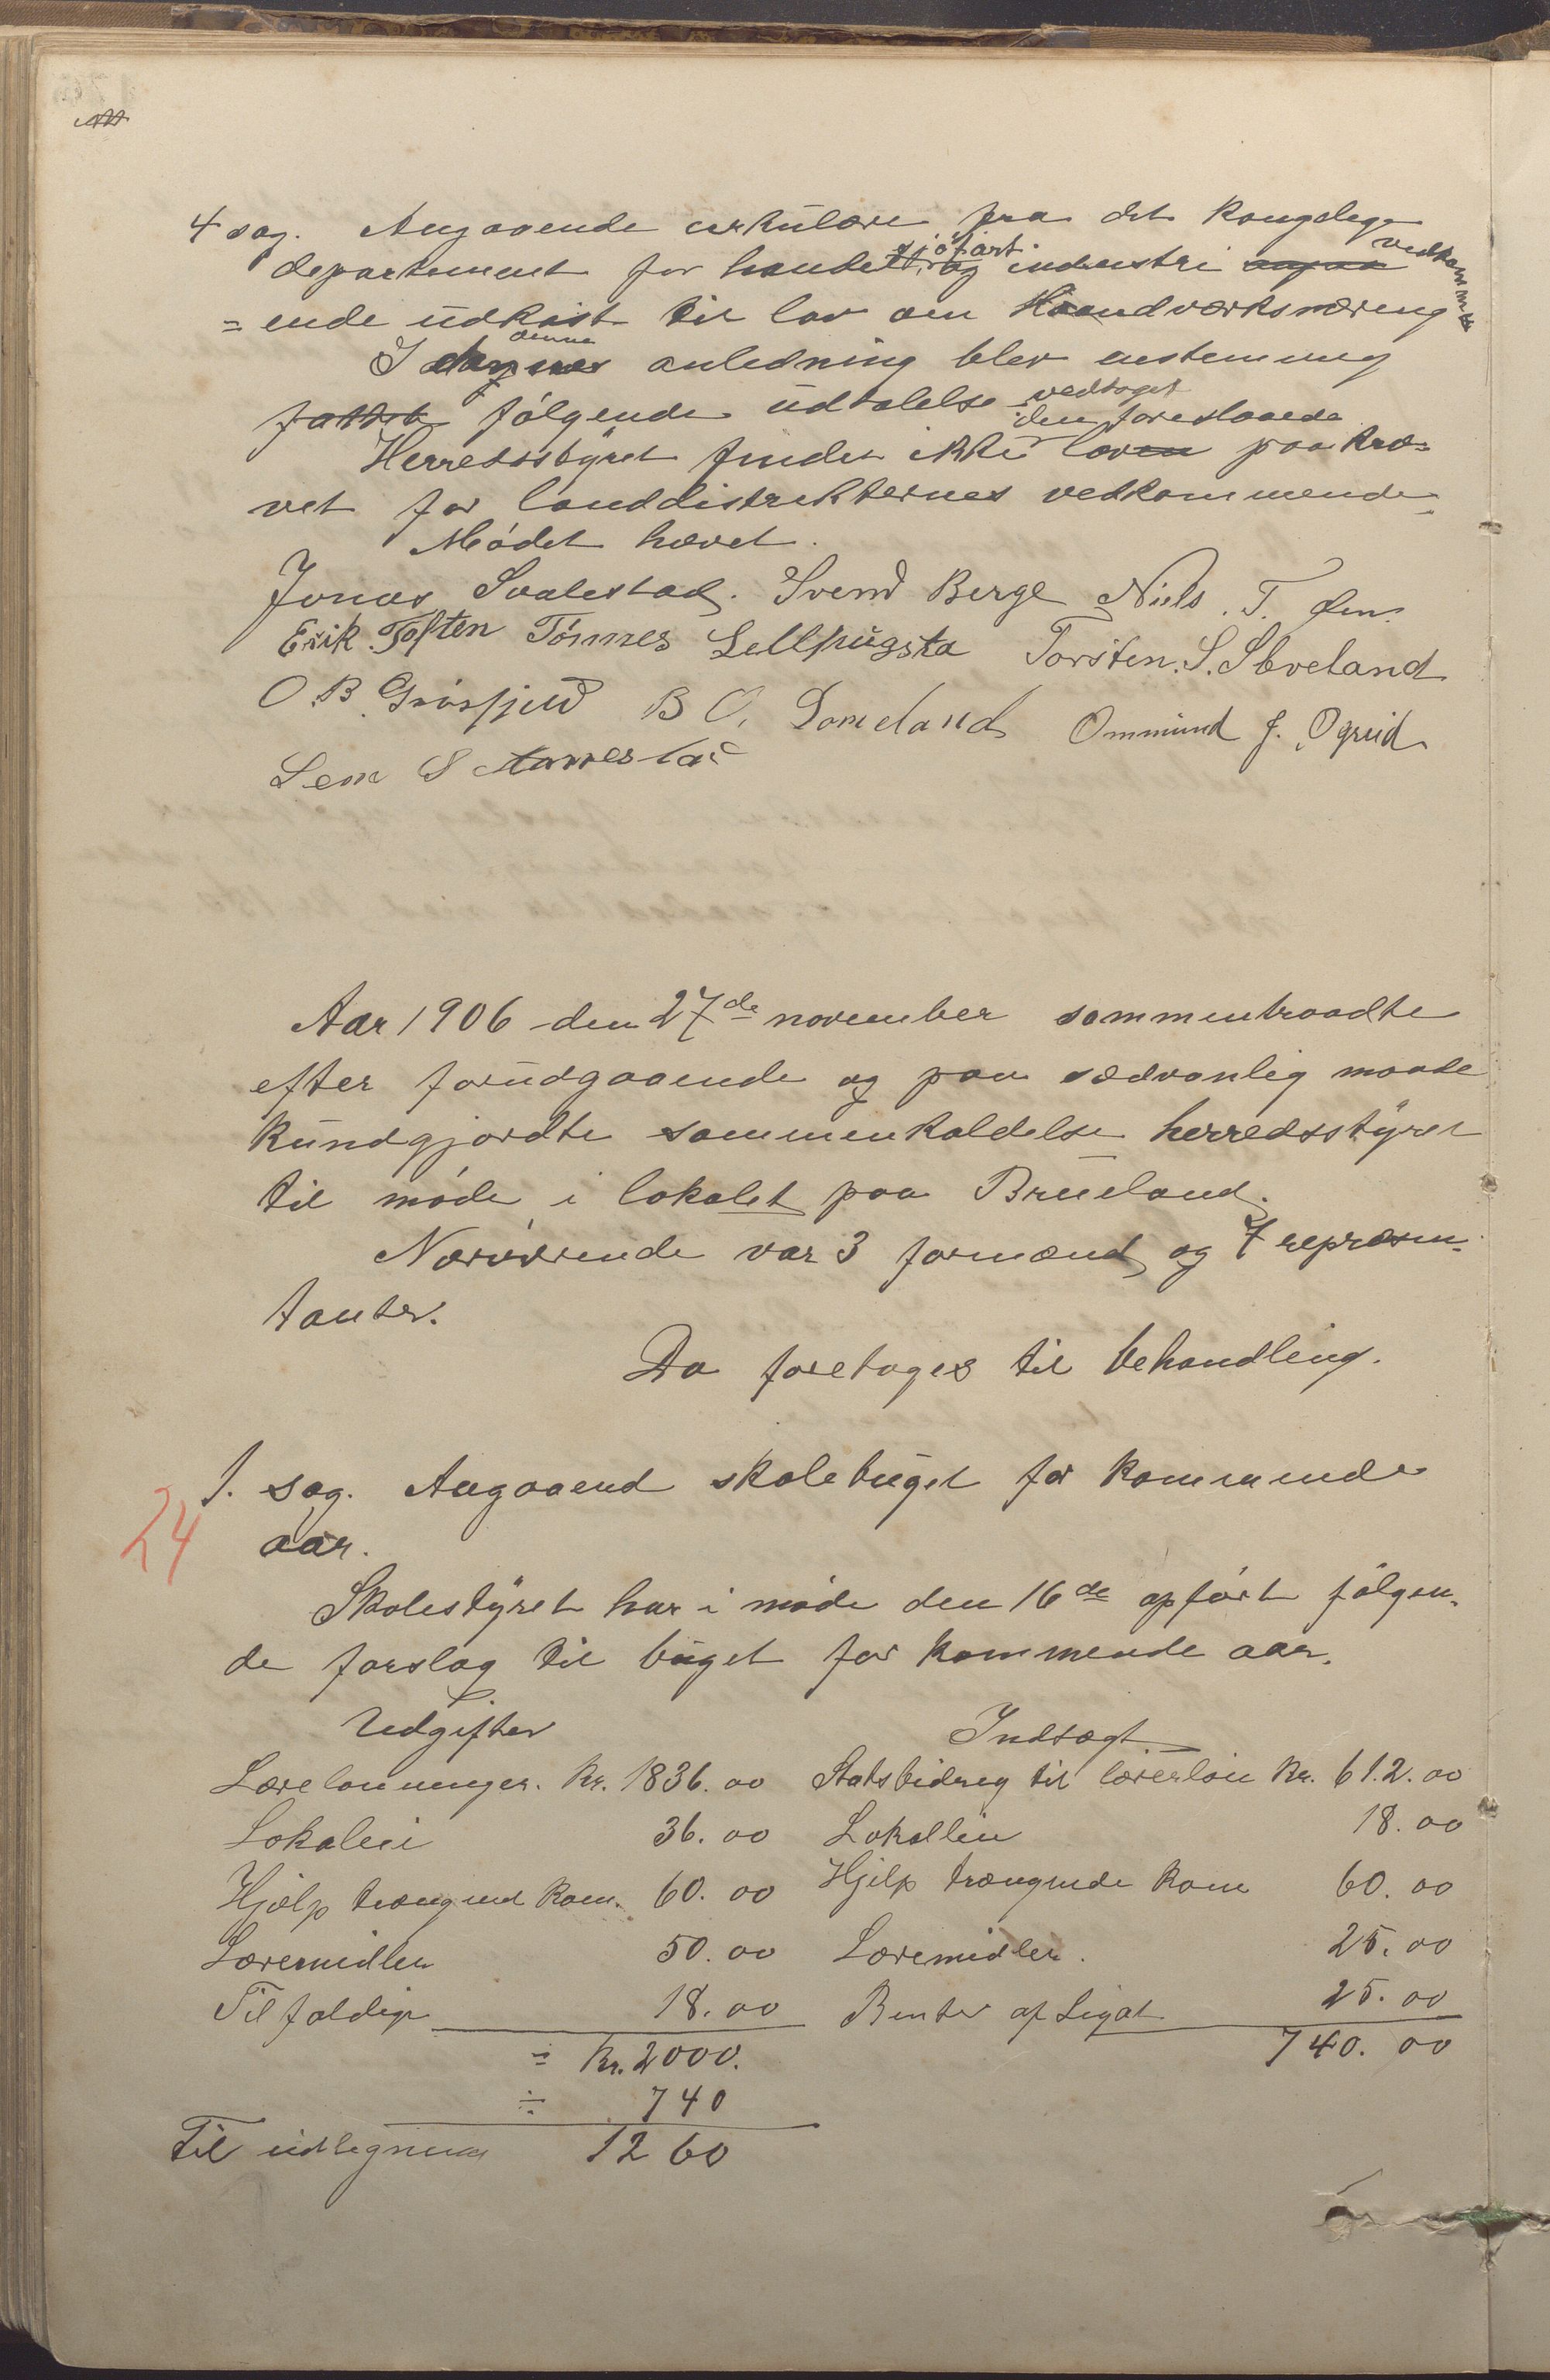 4 sag. Angaaende cirkulære fra det kongelige
departement for handel, sjöfart og industri vedkomm
= ende udkast til lov om Haandværksnæring
I denne anledning blev enstemmig
fattet fölgende udtalelse vedtaget
Herredsstÿret finder ikke den foreslaaede lov paakræ-
vet for landdistrikternes vedkommende.
Mödet hævet.
Jonas Svalestad. Svend Berge Niels. T.
Erik. Toften Tönnes Torsten. S. Sleveland
O. B. Grösfjeld B O. Domeland Ommund J. Ogreid
Sem S
Aar 1906 den 27de november sammentraadte
efter forudgaaende og paa sædvanlig maade
kundgjordte sammenkaldelse herredsstÿret
til möde i lokalet paa Brueland.
Nærværende var 3 formænd og 7 repræsen-
tanter.
Da foretages til behandling.
1. sag. Angaaend skolebuget for kommende
24 aar.
Skolestÿret har i möde den 16de opfört fölgen-
de forslag til buget for kommende aar.
Udgifter Indtægt
Lærelönninger. Kr. 1836.00 Statsbidrag til lærerlön Kr. 612.00
Lokaleie 36.00 Lokalleie 18.00
Hjælp trængend kom. 60.00 Hjelp trængende kom 60.00
Læremidler 50.00 Læremidler. 25.00
Tilfældige 18.00 Renter af Legat 25.00
= Kr. 2000. 740.00
÷ 740
Til udligning 1260